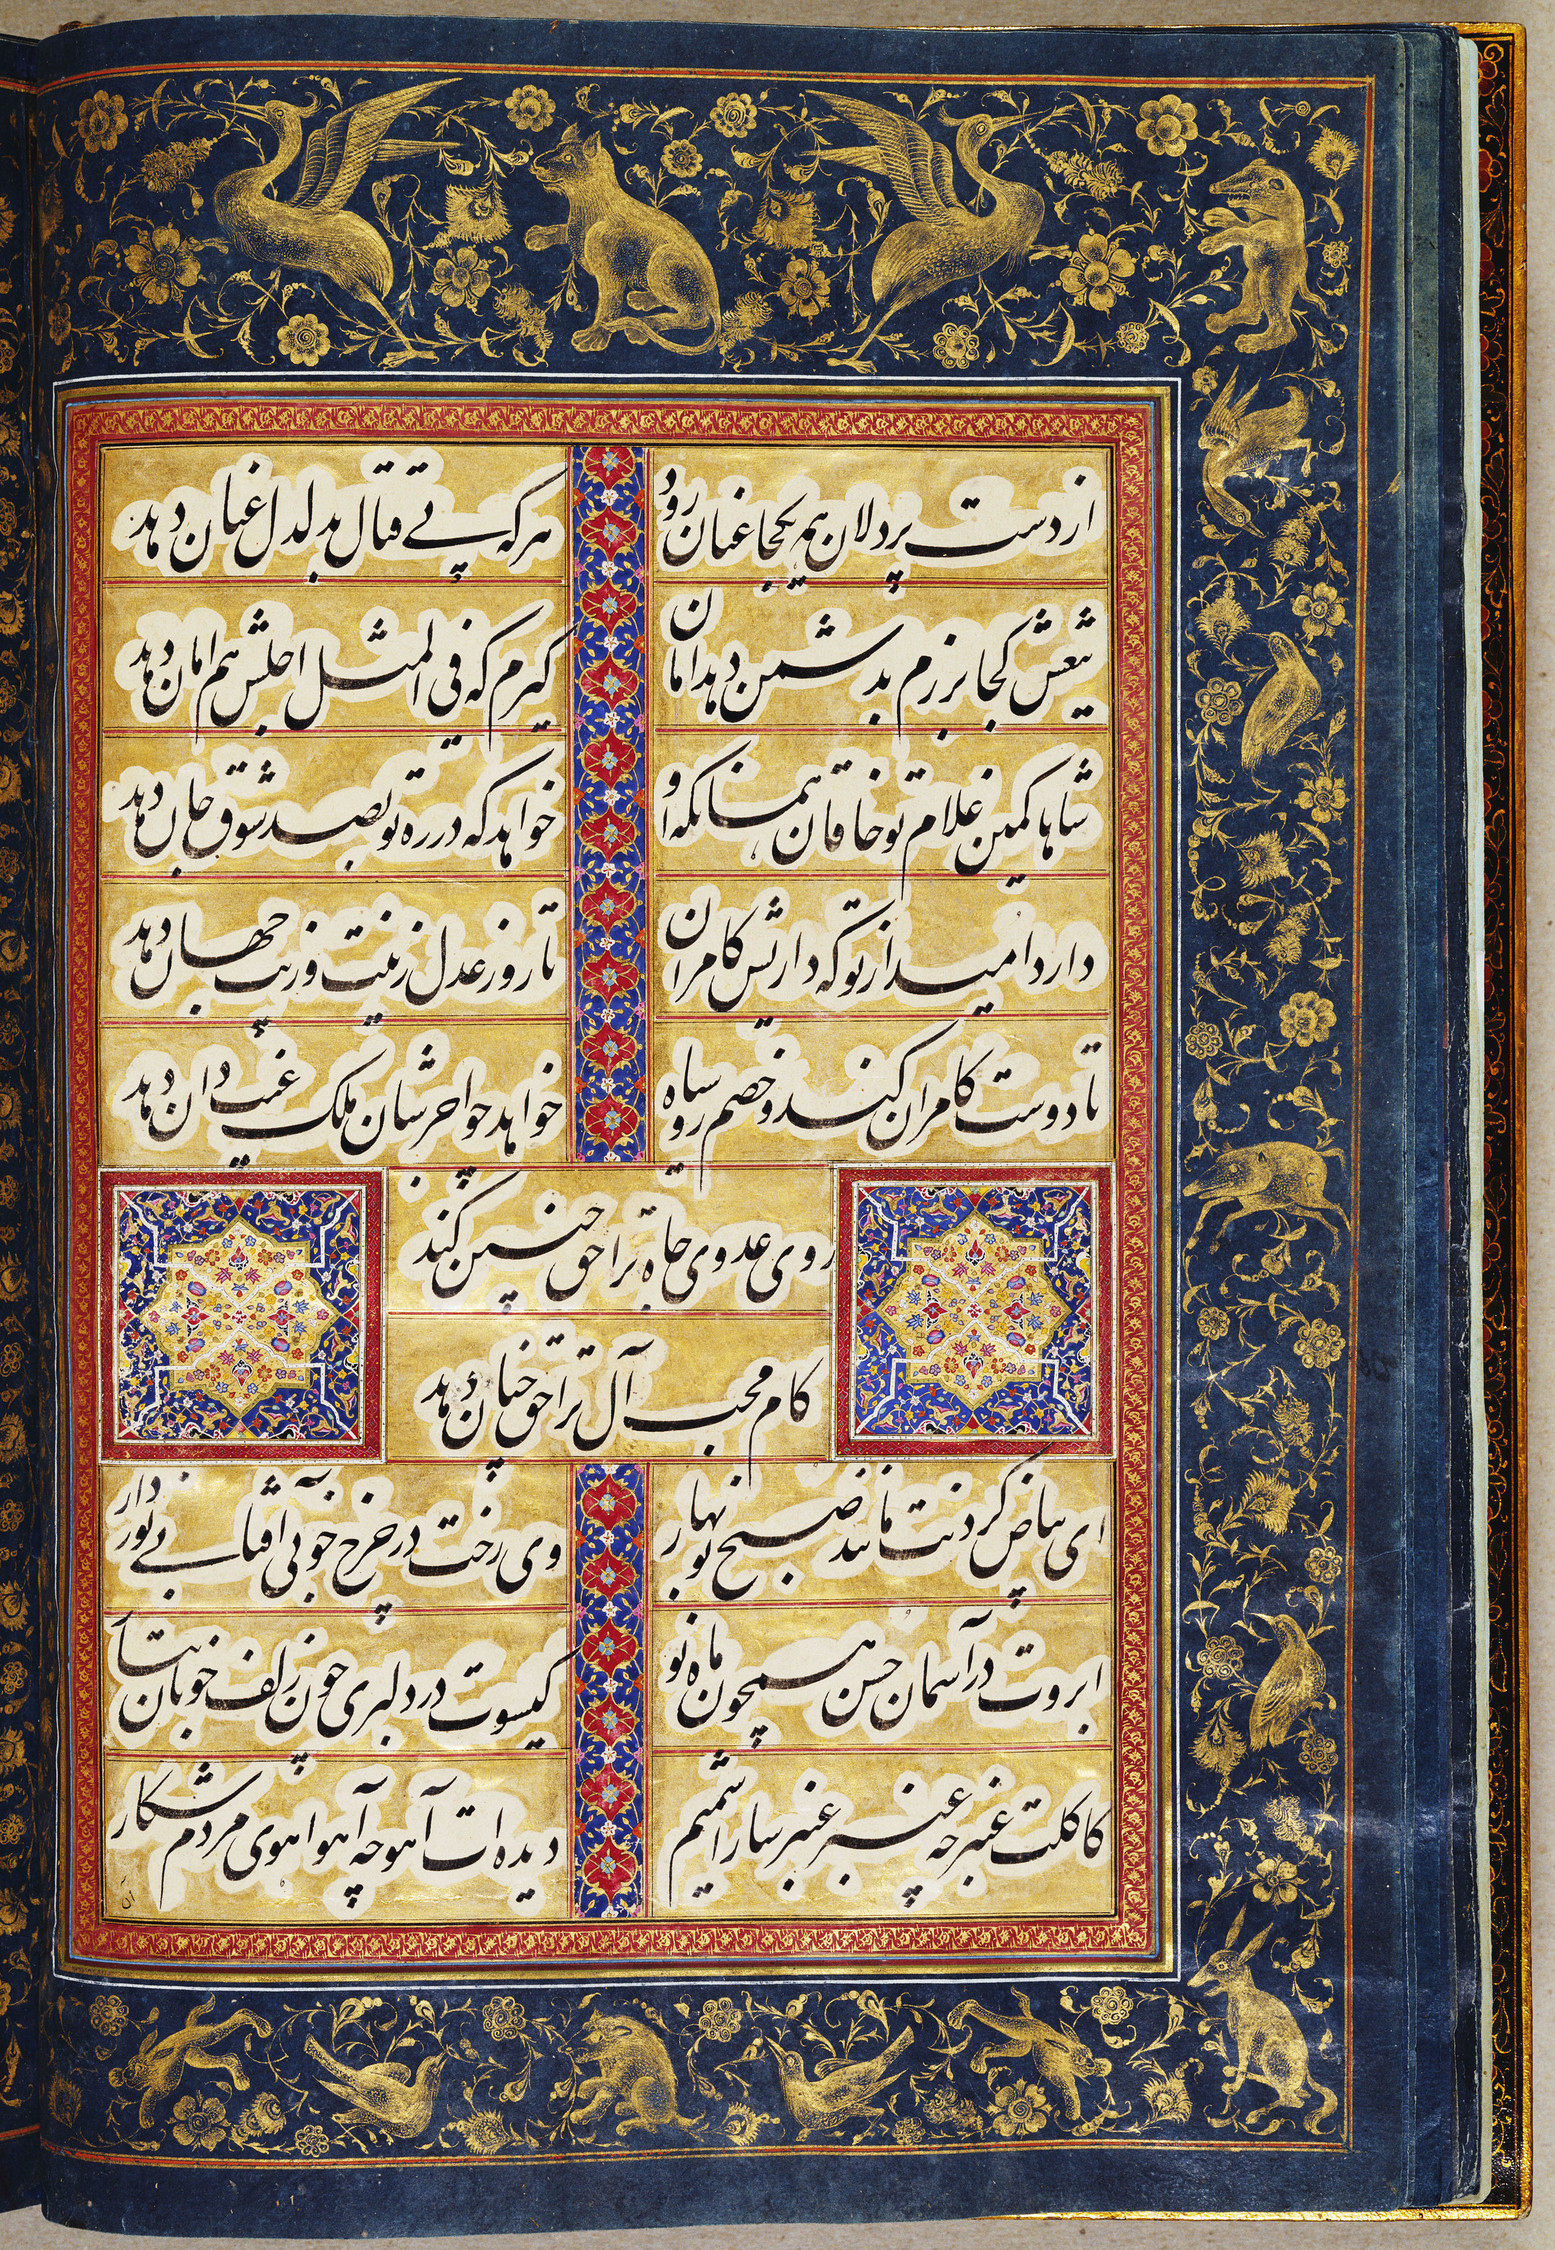 از دست پردلان همه یکجا عنان رود
هر که پی قتال بدلدل عنان دهد
تیغش کجا برزم بدشمن دهد امان
گیرم که فی المثل اجلش هم امان دهد
شاها کمین غلام تو خاقان همانکه او
خواهد که در ره تو بصد شوق جان دهد
دارد امید از تو که داریش کامران
تا روز عدل زینت و زیب جهان دهد
تا دوست کامران کند و خصم روسیاه
خواهد جو احرشان ملک غیب دان دهد
روی عدوی جاه ترا حق چنین کند
کام محب آل ترا حق چنان دهد
ای بیاض گردنت مانند صبح نوبهار
وی رخت در چرخ خوبی آفتاب بی نوردار
ابروت در آسمان حسن همچون ماه نو
گیسوت در دلبری چون زلف خوبان
کاکلت عنبر چه عنبر عنبر سارا شمیم
دیده ات آهو چه آهو آهوی مردم شکار